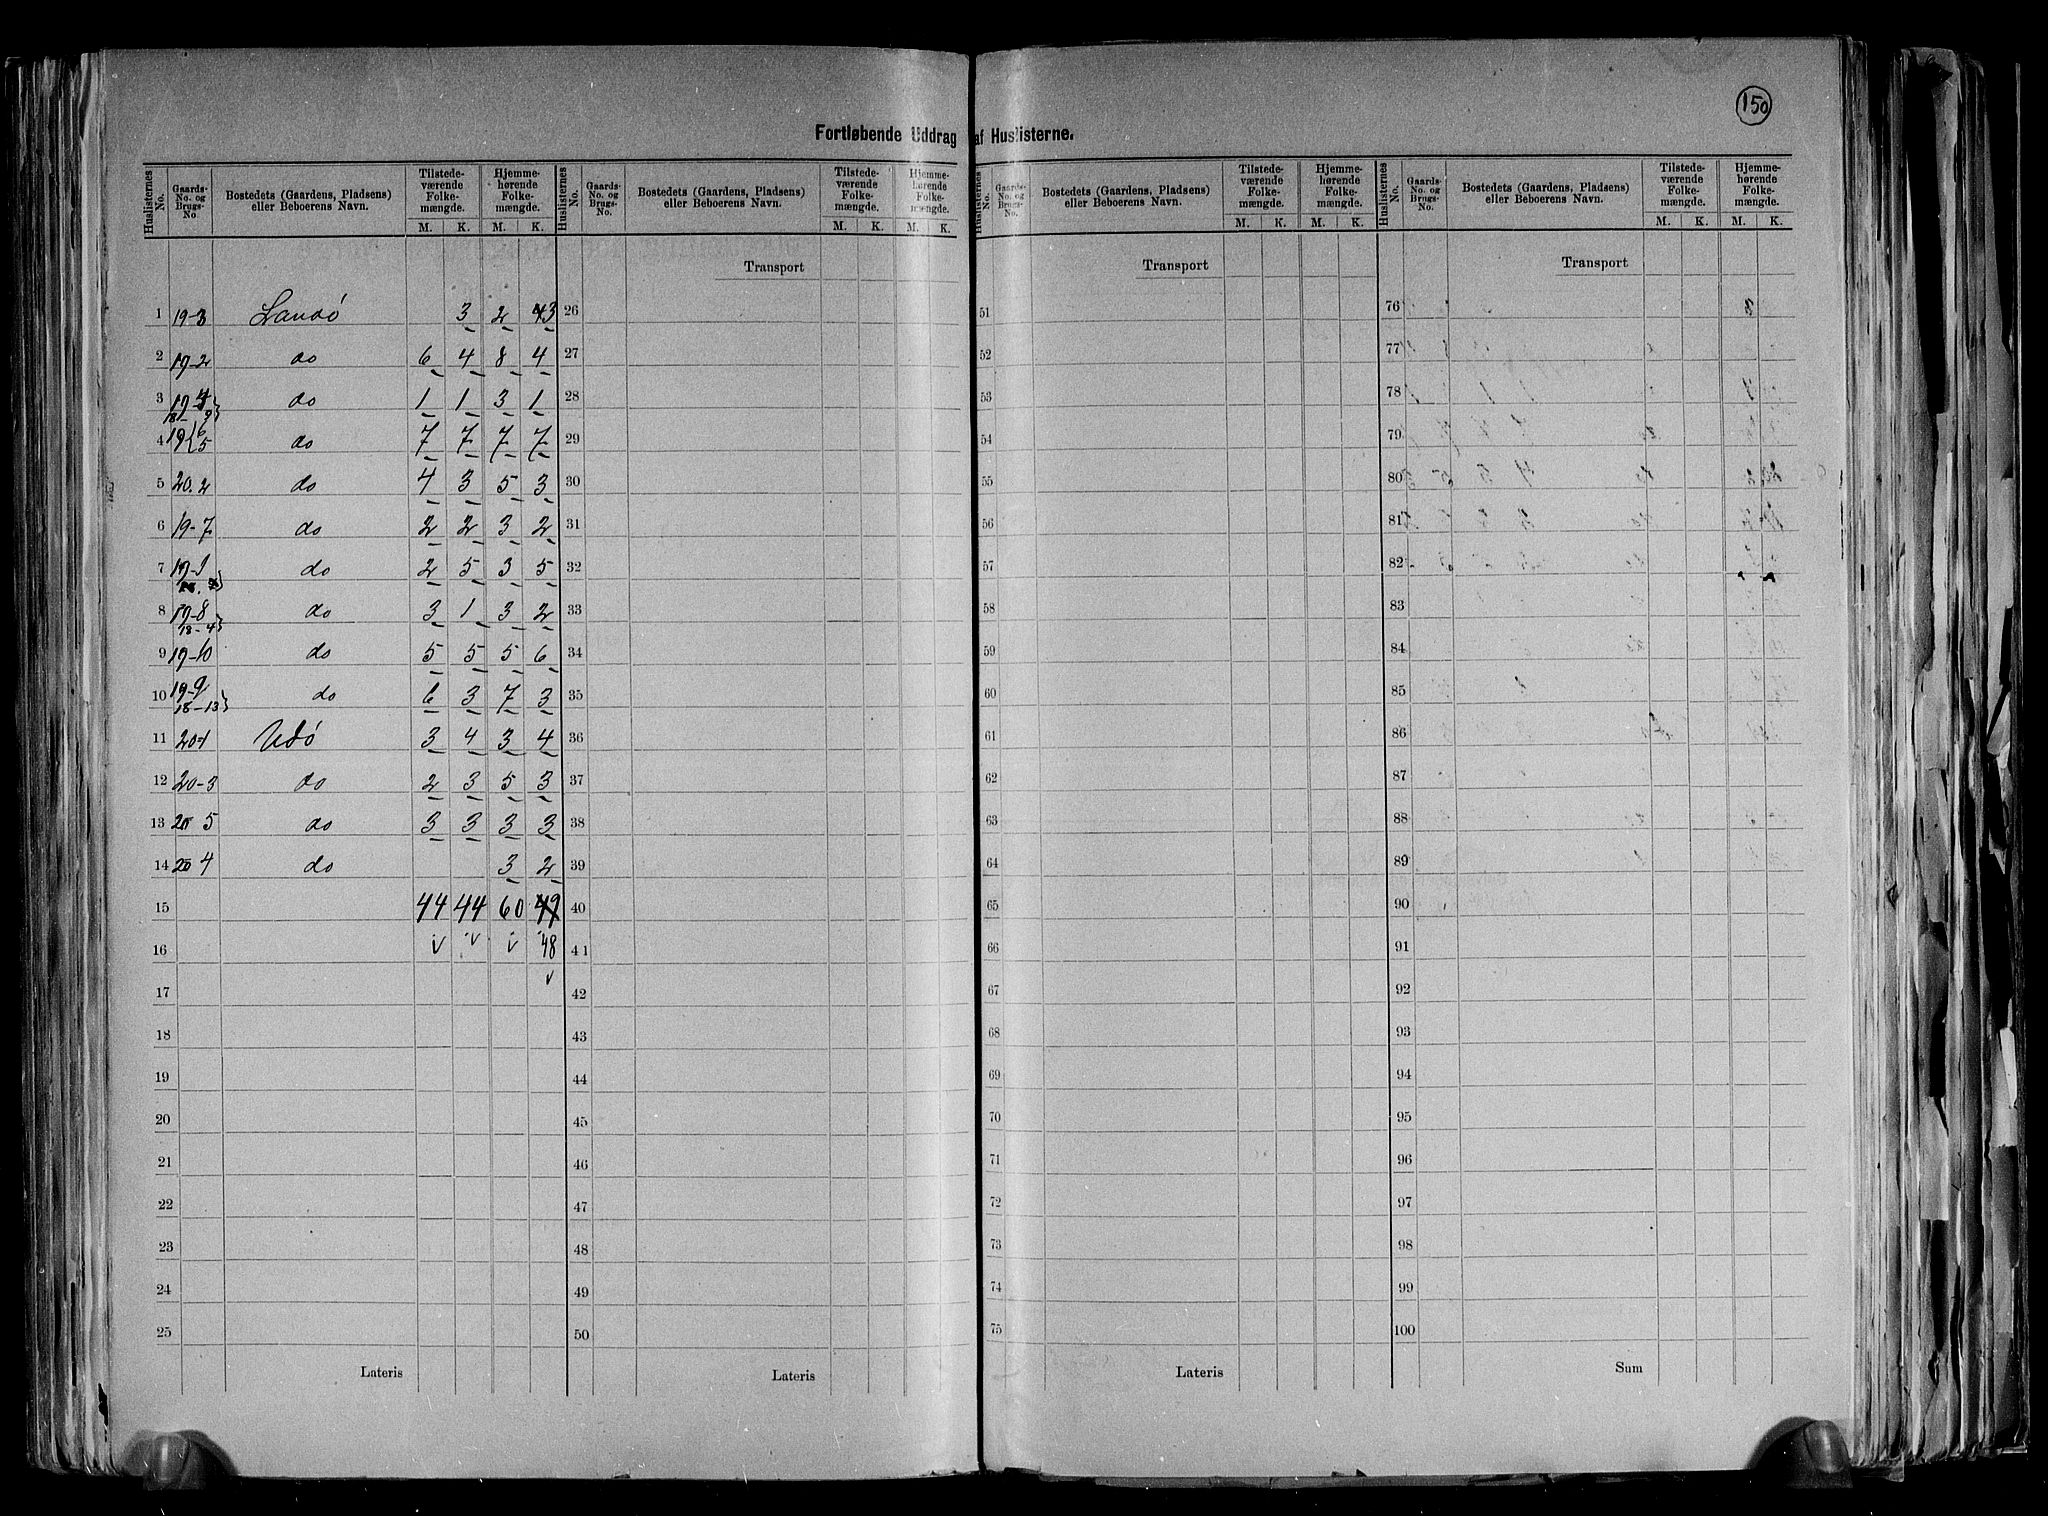 150
Fortløbende Uddrag af Huslisterne.
Huslisternes No. | Gaards-No. og Brugs-No. | Bostedets (Gaardens, Pladsens) eller Beboerens Navn. | Tilstedeværende Folkemængde. M. K. | Hjemmehørende Folkemængde. M. K.
Huslisternes No. | Gaards-No. og Brugs-No. | Bostedets (Gaardens, Pladsens) eller Beboerens Navn. | Tilstedeværende Folkemængde. M. K. | Hjemmehørende Folkemængde. M. K.
Huslisternes No. | Gaards-No. og Brugs-No. | Bostedets (Gaardens, Pladsens) eller Beboerens Navn. | Tilstedeværende Folkemængde. M. K. | Hjemmehørende Folkemængde. M. K.
Huslisternes No. | Gaards-No. og Brugs-No. | Bostedets (Gaardens, Pladsens) eller Beboerens Navn. | Tilstedeværende Folkemængde. M. K. | Hjemmehørende Folkemængde. M. K.
Transport Transport Transport
1 19-3 Landö 3 2 3 26 51 76
2 19-2 do 6 4 8 4 27 52 77
3 19-4 do 1 1 3 1 28 53 78
4 19 {6 5 do 7 7 7 7 29 54 79
5 20.2 do 4 3 5 3 30 55 80
6 19-7 do 2 2 3 2 31 56 81
7 19-1 do 2 5 3 5 32 57 82
8 19-8 18-4} do 3 1 3 2 33 58 83
9 19-10 do 5 5 5 6 34 59 84
10 19-9 18-13} do 6 3 7 3 35 60 85
11 20-1 Udö 3 4 3 4 36 61 86
12 20-3 do 2 3 5 3 37 62 87
13 20 5 do 3 3 3 3 38 63 88
14 20 4 do 3 2 39 64 89
15 44 44 60 49 40 65 90
16 48 41 66 91
17 42 67 92
18 43 68 93
19 44 69 94
20 45 70 95
21 46 71 96
22 47 72 97
23 48 73 98
24 49 74 99
25 50 75 100
Lateris Lateris Lateris Sum